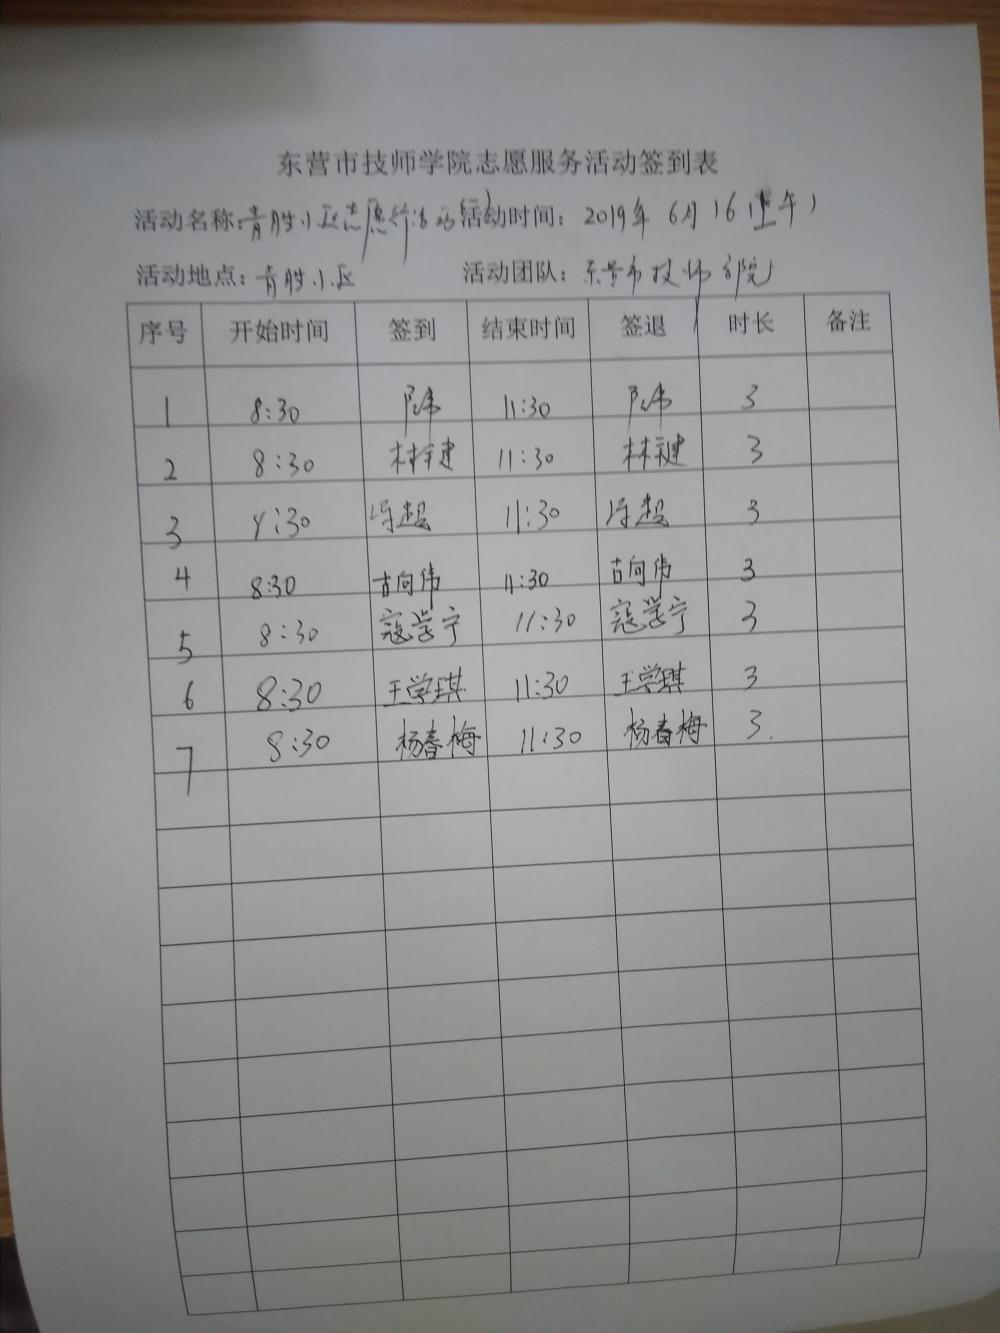 东营市技师学院志愿服务活动签到表
活动名称:青胜小区志愿行活动 活动时间: 2019年 6月16(上午)
活动地点:青胜小区 活动团队:东营市技师学院
序号 开始时间 签到 结束时间 签退 时长 备注
1 8:30 11:30 3
2 8:30 11:30 3
3 8:30 11:30 3
4 8:30 古向伟 11:30 古向伟 3
5 8:30 寇学宁 11:30 寇学宁 3
6 8:30 王学琪 11:30 王学琪 3
7 8:30 杨春梅 11:30 杨春梅 3.